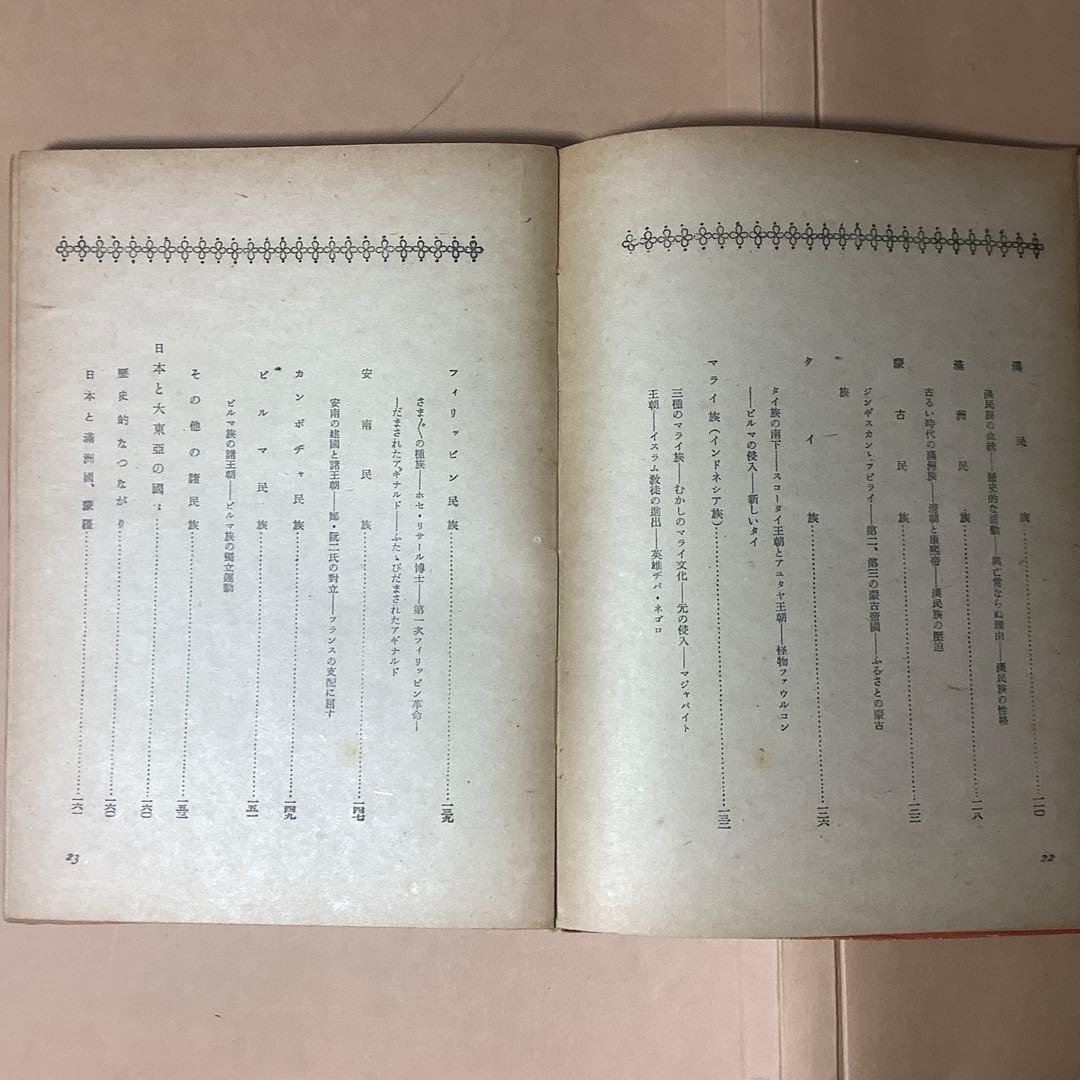 漢民族…………一一〇
漢民族の血統――歴史的な活動――興亡常ならぬ理由――漢民族の性格
滿洲民族…………一一八
古るい時代の滿洲族――淸朝と康熙帝――漢民族の壓迫
蒙古民族…………一二二
ジンギスカンとフビライ――第二、第三の蒙古帝國――ふるさとの蒙古
族
タイ族…………一二六
タイ族の南下――スコータイ王朝とアユタヤ王朝――怪物ファウルコン
――ビルマの侵入――新しいタイ
マライ族（インドネシア族）…………一三二
三種のマライ族――むかしのマライ文化――元の侵入――マジャパイト
王朝――イスラム敎徒の進出――英雄ヂパ・ネゴロ
22
フィリッピン民族…………一三九
さまみ〵の種族――ホセ・リサール博士――第一次フィリッピン革命―
―だまされたアギナルド――ふたゝびだまされたアギナルド
安南民族…………一四七
安南の建國と諸王朝――鄭・阮二氏の對立――フランスの支配に屈す
カンボヂャ民族…………一四九
ビルマ民族…………一五一
ビルマ族の諸王朝――ビルマ族の獨立運動
その他の諸民族…………一五三
日本と大東亞の國〻…………一六〇
歷史的なつながり…………一六〇
日本と滿洲國、蒙疆…………一六一
23